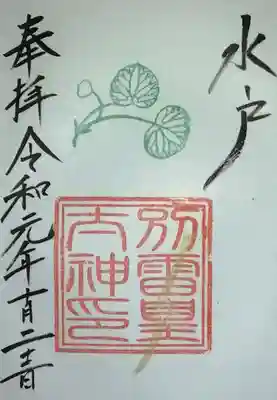 水戸
別雷皇
太神印
奉拝令和元年十月二十二日